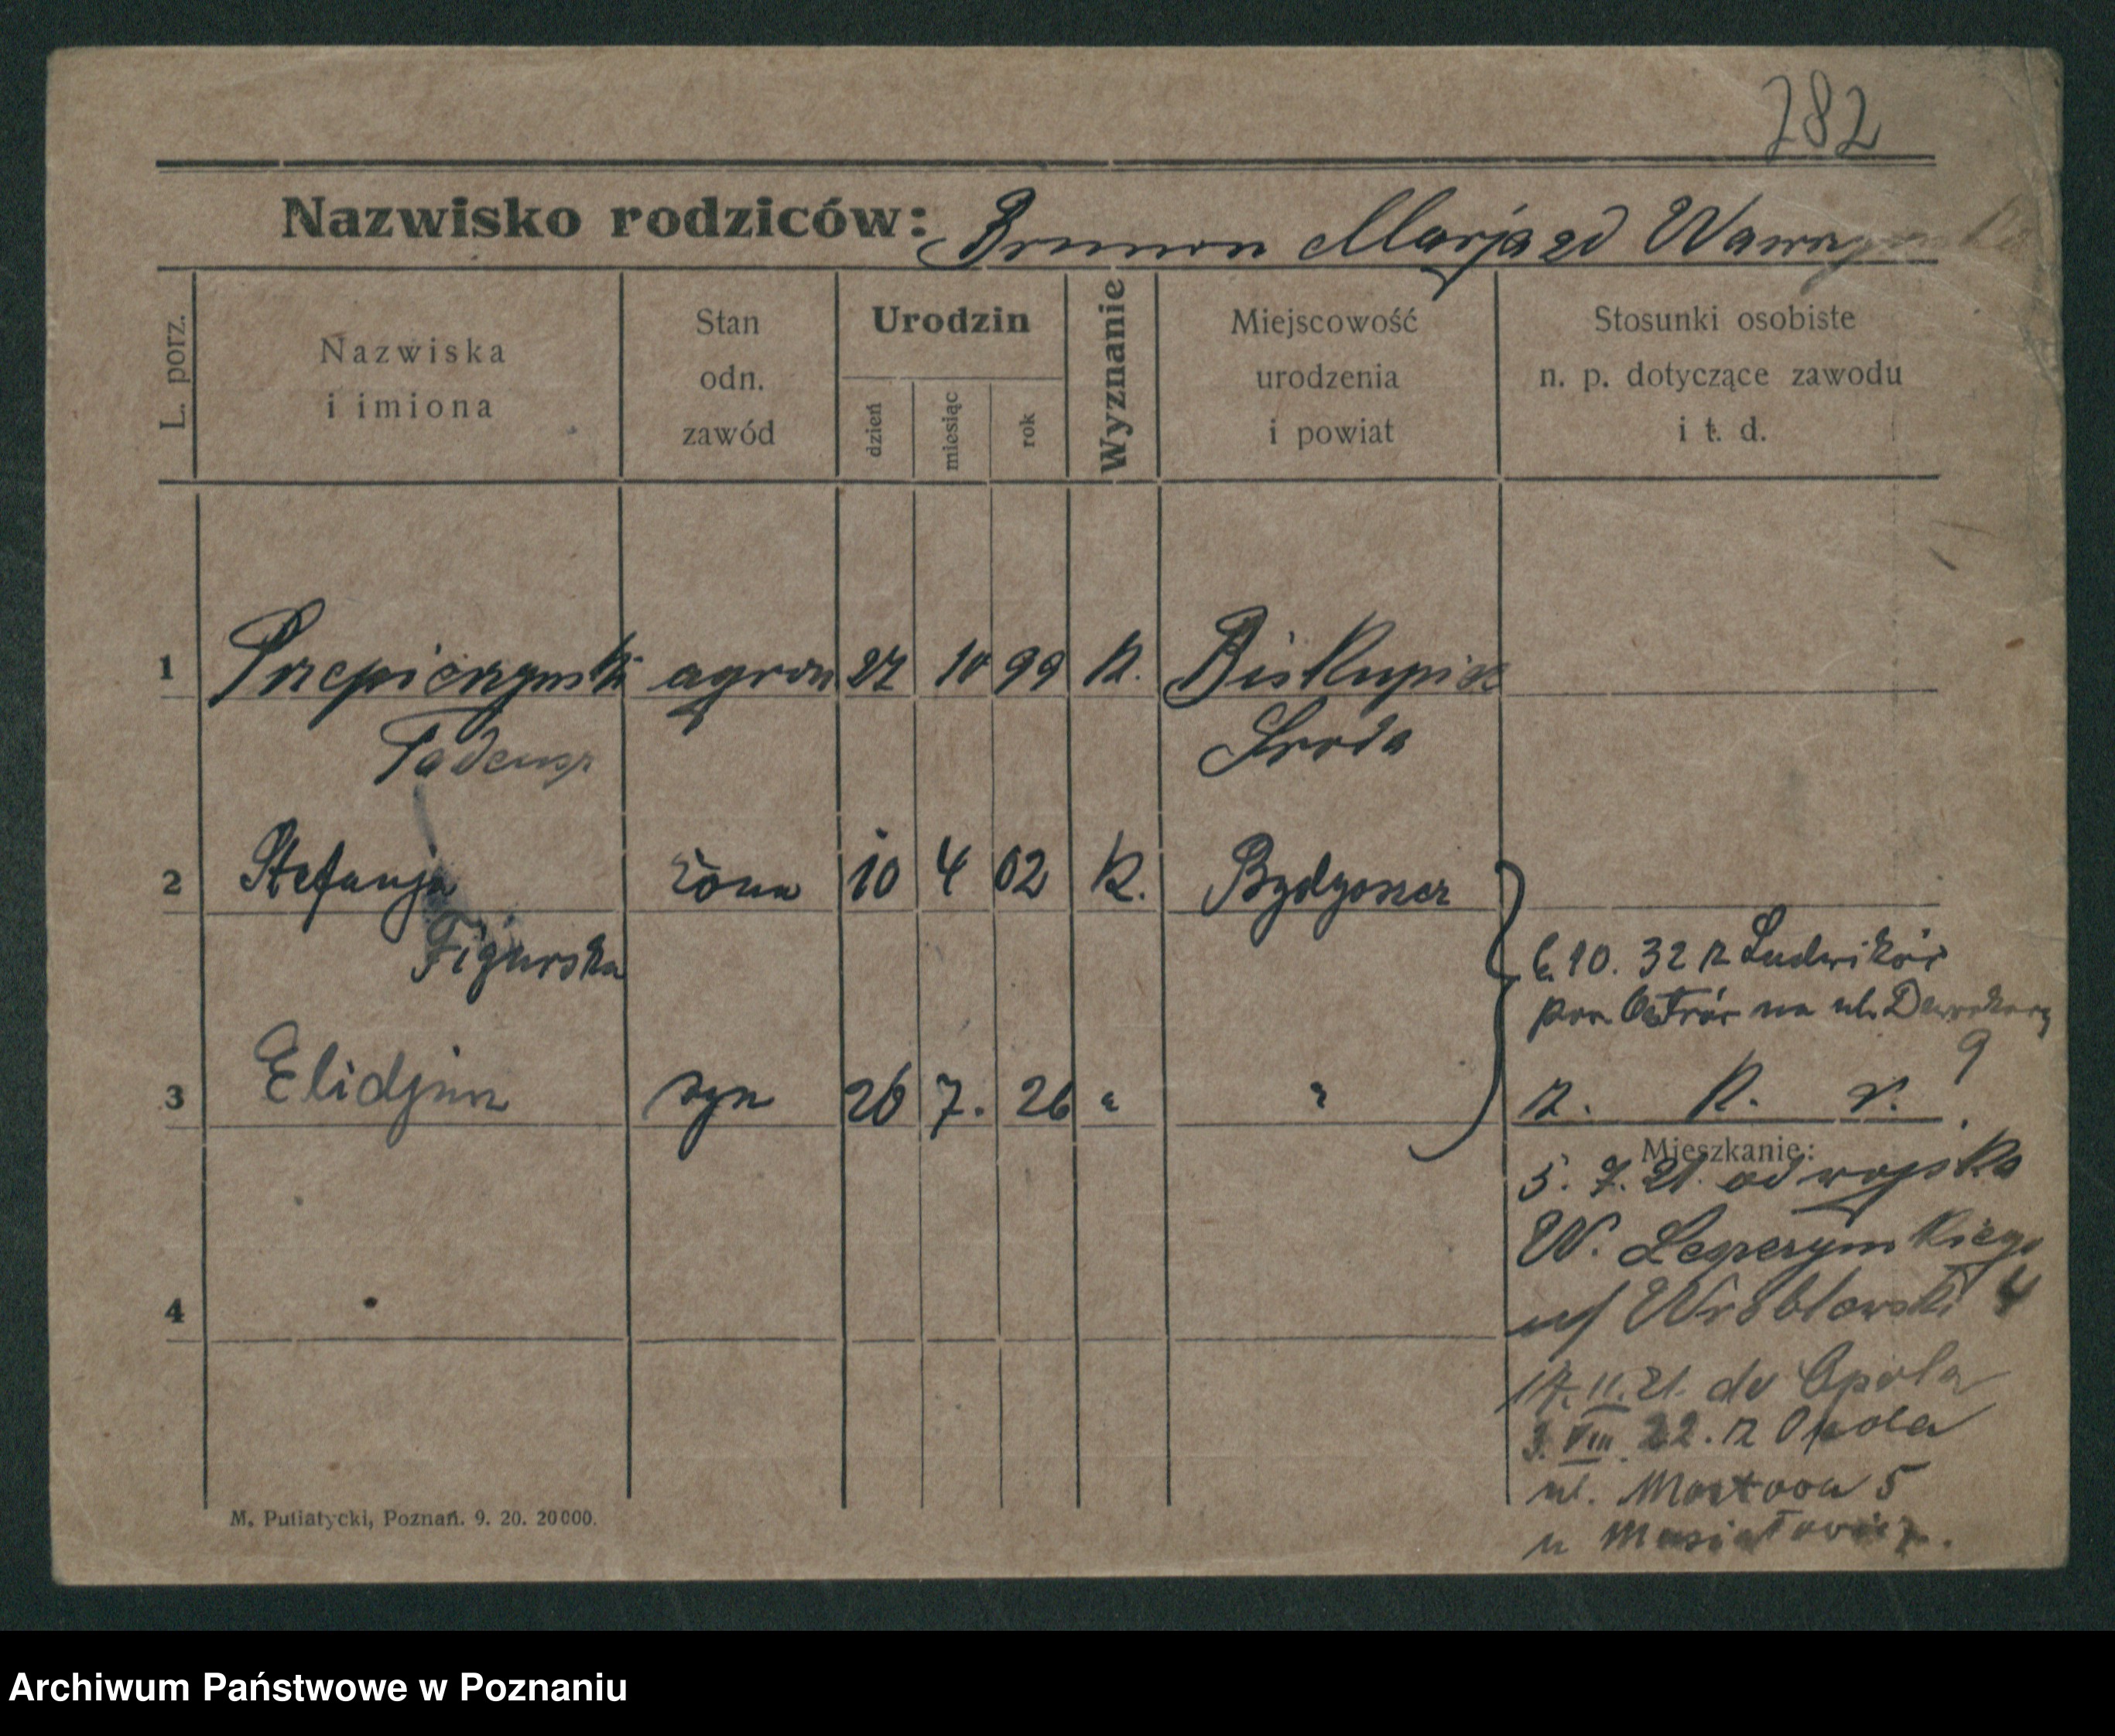 282
Nazwisko rodziców: Brunon Marja zd
L. porz.
Nazwiska
i imiona
Stan
odn.
zawód
Urodzin
dzień
miesiąc
rok
Wyznanie
Miejscowość
urodzenia
i powiat
Stosunki osobiste
n. p. dotyczące zawodu
i t. d.
1 agron 27 10 99 k.
Tadeusz Sroda
2 Stefanja żona 10 4 02 k. Bydgoszcz
Figurska
6. 10. 32 z Ludwików
pow. Ostrów na ul.
9
3 Elidjusz syn 26 7. 26 " "
z. k. r.
Mieszkanie:
5. 7. 21. od wojska
W.
4
Wroblewski 4
17. 11. 21. do Opola
3. VIII 22. z Opola
ul. Mostowa 5
u
M. Putiatycki, Poznań. 9. 20. 20000.
Archiwum Państwowe w Poznaniu